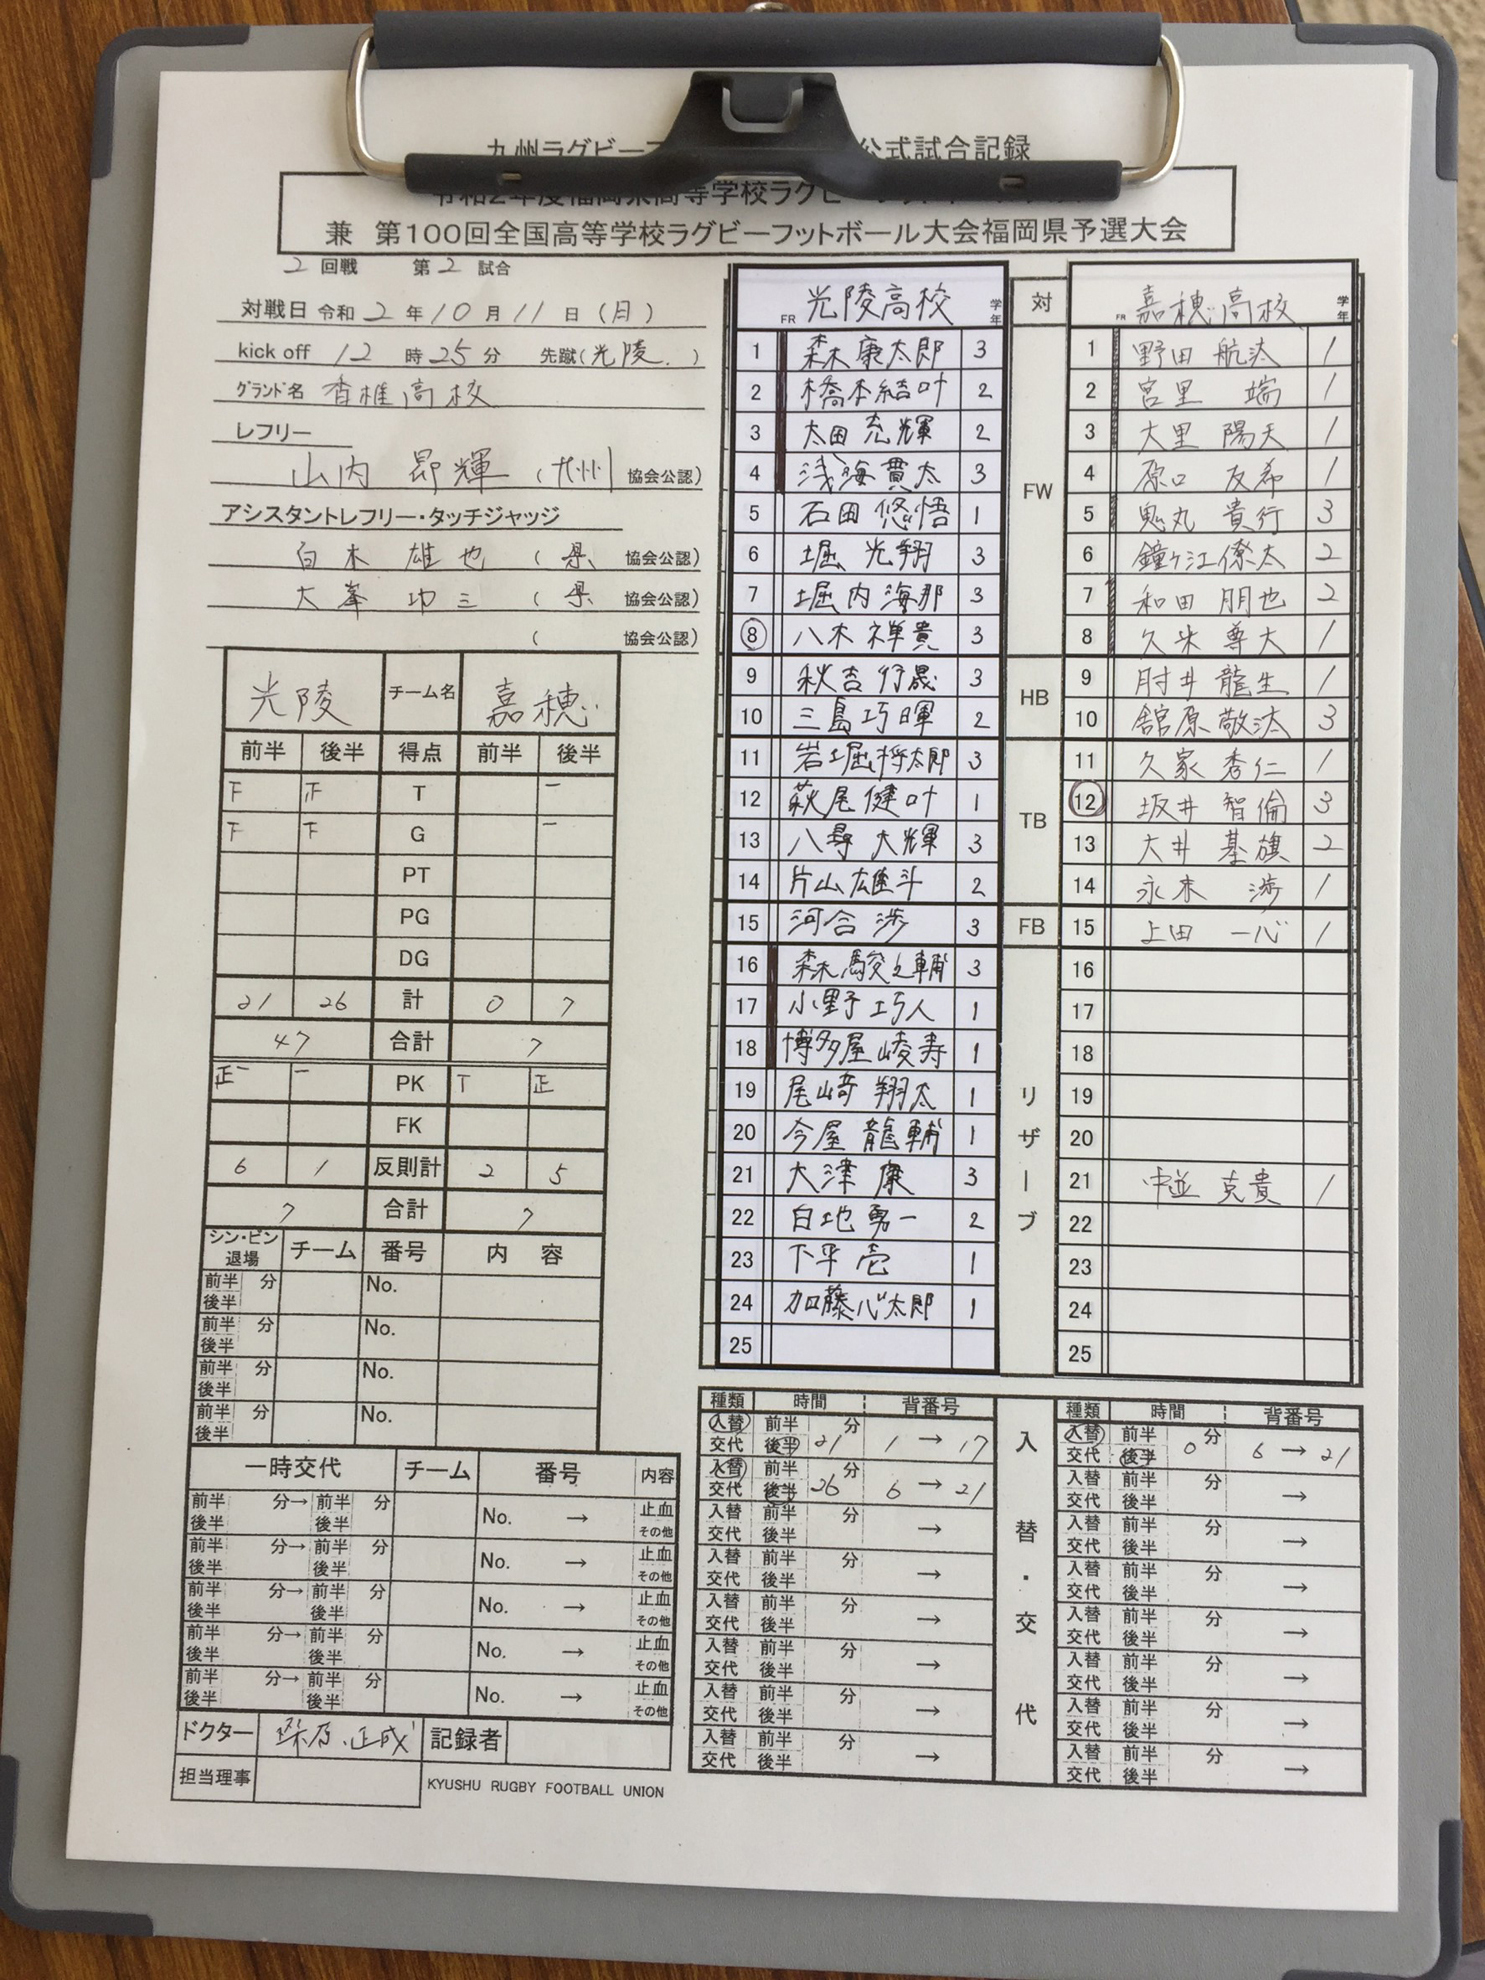 九州ラグビーフ 公式試合記録
令和2年度福岡県高等学校ラグビー
兼 第100回全国高等学校ラグビーフットボール大会福岡県予選大会
2 回戦 第 2 試合
対戦日 令和 2 年 10 月 11 日 (月)
kick off 12 時 25 分 先蹴(光陵.)
グランド名 香椎高校
レフリー
山内 昂輝 (九州 協会公認)
アシスタントレフリー・タッチジャッジ
白木 雄也 (県 協会公認)
大峯 功三 (県 協会公認)
( 協会公認)
光陵 チーム名 嘉穂
前半 後半 得点 前半 後半
下 正 T 一
下 下 G 一
PT
PG
DG
21 26 計 0 7
47 合計 7
正一 一 PK T 正
FK
6 1 反則計 2 5
7 合計 7
シン・ビン 退場 チーム 番号 内 容
前半 分 No.
後半
前半 分 No.
後半
前半 分 No.
後半
前半 分 No.
後半
一時交代 チーム 番号 内容
前半 分→ 前半 分 No. → 止血
後半 後半 その他
前半 分→ 前半 分 No. → 止血
後半 後半 その他
前半 分→ 前半 分 No. → 止血
後半 後半 その他
前半 分→ 前半 分 No. → 止血
後半 後半 その他
前半 分→ 前半 分 No. → 止血
後半 後半 その他
ドクター 正成 記録者
担当理事
KYUSHU RUGBY FOOTBALL UNION
FR 光陵高校 学年
1 森木康太郎 3
2 橋本結叶 2
3 太田充輝 2
4 浅海貫太 3
5 石田悠悟 1
6 堀 光翔 3
7 堀内海那 3
8 八木禅貴 3
9 秋吉行晟 3
10 三島巧暉 2
11 岩堀将太郎 3
12 萩尾健叶 1
13 八尋大輝 3
14 片山雄斗 2
15 河合渉 3
16 森木駿之輔 3
17 小野巧人 1
18 博多屋崚寿 1
19 尾崎翔太 1
20 今屋龍輔 1
21 大津康 3
22 白地勇一 2
23 下平壱 1
24 加藤心太郎 1
25
対
FW
HB
TB
FB
リザーブ
FR 嘉穂高校 学年
1 野田 航汰 1
2 宮里 端 1
3 大里 陽天 1
4 原口 友希 1
5 鬼丸 貴行 3
6 鐘ケ江僚太 2
7 和田 朋也 2
8 久米 尊大 1
9 肘井 龍生 1
10 舘原敬汰 3
11 久家 秀仁 1
12 坂井 智倫 3
13 大井 基旗 2
14 永末 渉 1
15 上田 一心 1
16
17
18
19
20
21 中並 克貴 1
22
23
24
25
種類 時間 背番号
入替 前半 分
交代 後半 21 1 → 17
入替 前半 分
交代 後半 26 6 → 21
入替 前半 分
交代 後半 →
入替 前半 分
交代 後半 →
入替 前半 分
交代 後半 →
入替 前半 分
交代 後半 →
入替 前半 分
交代 後半 →
入替 前半 分
交代 後半 →
入替・交代
種類 時間 背番号
入替 前半 分
交代 後半 0 6 → 21
入替 前半 分
交代 後半 →
入替 前半 分
交代 後半 →
入替 前半 分
交代 後半 →
入替 前半 分
交代 後半 →
入替 前半 分
交代 後半 →
入替 前半 分
交代 後半 →
入替 前半 分
交代 後半 →